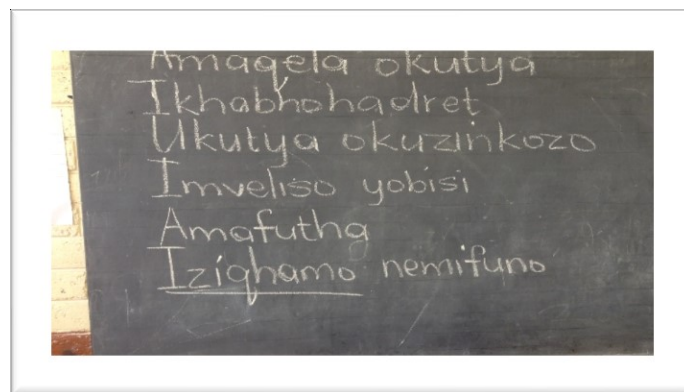 Amaqela okutya
Ikhabhohadret
Ukutya okuzinkozo
Imveliso yobisi
Amafutha
Iziqhamo nemifuno